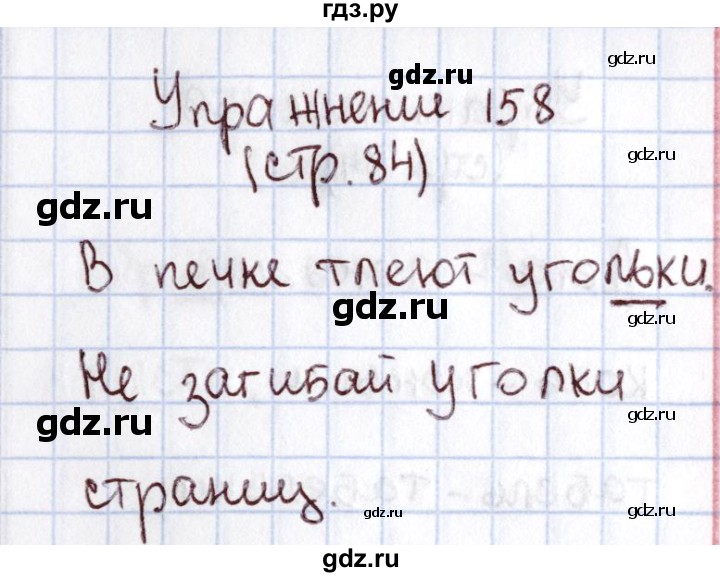 гдз.ру
gdz.ru
gdz.ru
Упражнение 158
gdz.ru
(стр. 84)
gdz.ru
gdz.ru
В печке тлеют угольки.
gdz.ru
gdz.ru
Не загибай уголки
gdz.ru
gdz.ru
страниц.
gdz.ru
gdz.ru
gdz.ru